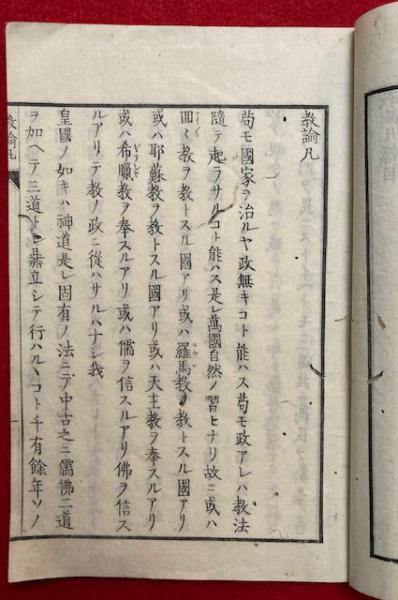 教諭凡
苟モ國家ヲ治ルヤ政無キコト能ハス苟モ政アレハ教法
隨テ起ラサルコト能ハス是レ萬國自然ノ習ヒナリ故ニ或ハ
囬々教ヲ教トスル國アリ或ハ羅馬教ヲ教トスル國アリ
或ハ耶蘇教ヲ教トスル國アリ或ハ天主教ヲ奉スルアリ
或ハ希臘教ヲ奉スルアリ或ハ儒ヲ信スルアリ佛ヲ信ス
ルアリテ教ノ政ニ從ハサルハナシ我
皇國ノ如キハ神道是レ固有ノ法ニテ中古之ニ儒佛二道
ヲ加ヘテ三道トシ鼎立シテ行ハルヽコト千有餘年ソノ
教諭凡